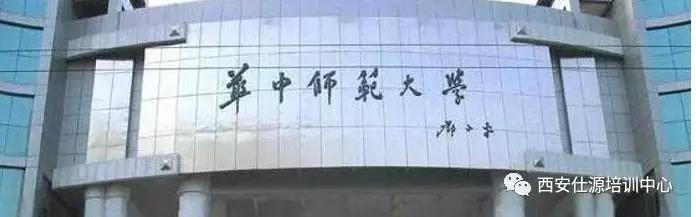 華中师範大学
邓小平
西安仕源培训中心